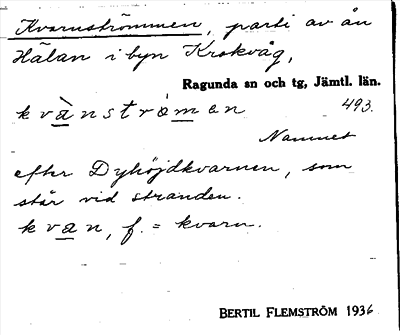 Kvarnströmmen, parti av ån
Hälan i byn Krokvåg,
Ragunda sn och tg, Jämtl. län.
kvànstrómen 493.
Namnet
efter Dyhöjdkvarnen, som
står vid stranden.
kvan, f. = kvarn.
BERTIL FLEMSTRÖM 1936